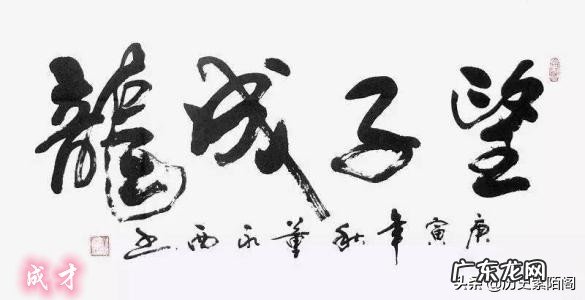 望子成龍
庚寅年秋董永西书
成才
广东龙网
头条 @历史紫陌阁